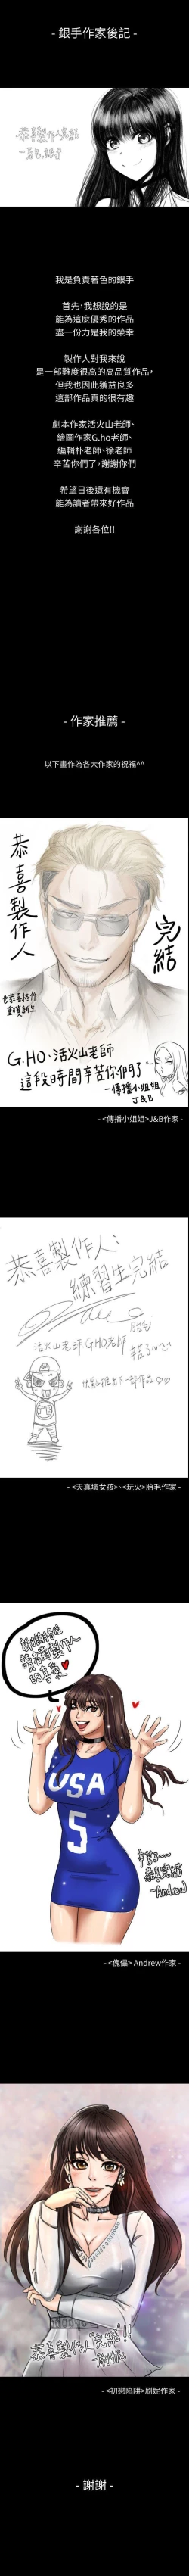 - 銀手作家後記 -
恭喜製作人完結
我是負責著色的銀手
首先,我想說的是
能為這麼優秀的作品
盡一份力是我的榮幸
製作人對我來說
是一部難度很高的高品質作品,
但我也因此獲益良多
這部作品真的很有趣
劇本作家活火山老師、
繪圖作家G.ho老師、
編輯朴老師、徐老師
辛苦你們了,謝謝你們
希望日後還有機會
能為讀者帶來好作品
謝謝各位!!
- 作家推薦 -
以下畫作為各大作家的祝福^^
恭喜製作人
完結
G.HO·活火山老師
這段時間辛苦你們了
-傳播小姐姐
J&B
- <傳播小姐姐>J&B作家 -
恭喜製作人:
練習生完結
活火山老師 G.HO老師
- <天真壞女孩>、<玩火>胎毛作家 -
USA
5
恭喜完結
-Andrew
- <傀儡> Andrew作家 -
恭喜製作人完結!!
- <初戀陷阱>刷妮作家 -
- 謝謝 -